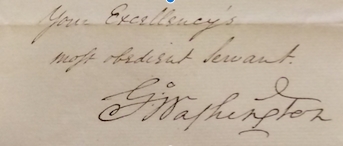 Your Excellency's
most obedient Servant.
Go Washington